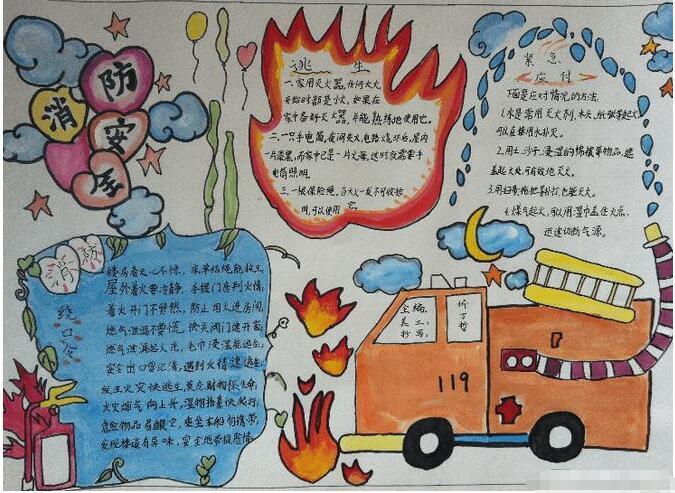 消防安全
逃生
一、家用灭火器,任何火灾
开始时都是小火,如果在
家中备好灭火器,并能熟练地使用它。
二、一只手电筒,夜间失火,电路烧坏后,屋内
一片漆黑,而家中已是一片火海,这时就需要手
电筒照明。
三、一根保险绳,当大火一发不可收拾
时,可以使用它。
紧急
应付
下面是应对情况的方法.
1.水是常用灭火剂,木头,纸张等起火
可以在患用水扑灭.
2.用土、沙子、浸湿的棉被等物品,遮
盖起火处,可有效地灭火。
3.用扫帚拖把等扑打也能灭火。
4.煤气起火,可以用湿巾盖住火点,
迅速切断气源。
消防
绕口令
楼房着火心不惊,床单结绳能救生
屋外着火要冷静,手摸门房判火情;
着火开门不贸然,防止烟火进房间,
燃气泄漏不要慌,快关阀门速开窗;
燃气泄漏起火光,毛巾浸湿能逃生;
安全出口要记清,遇到火情速逃生;
发生火灾快逃生,莫恋财物保生命;
火灾烟气向上升,湿物捂鼻快爬行;
危险物品易酿灾,乘坐车船勿携带,
发现楼道有异味,安全地带报险情.
主编:
美工:
抄写:
119